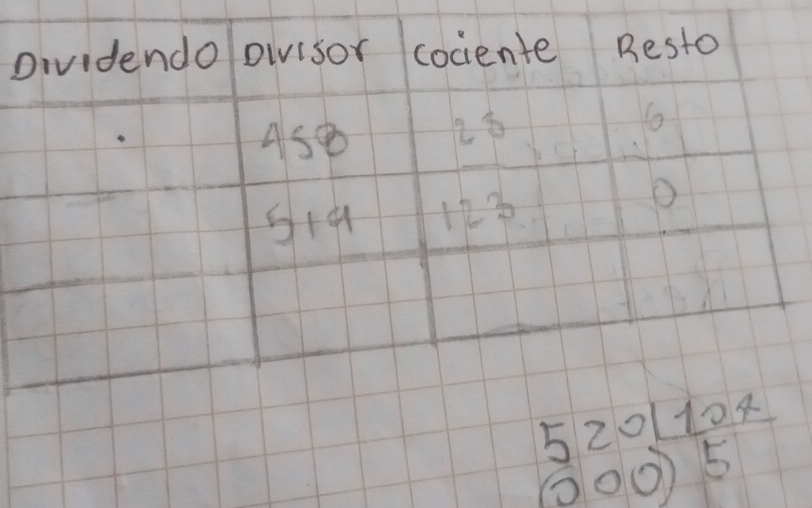 Dividendo Divisor Cociente Resto
458 25 6
514 123 0
520 104
000 5